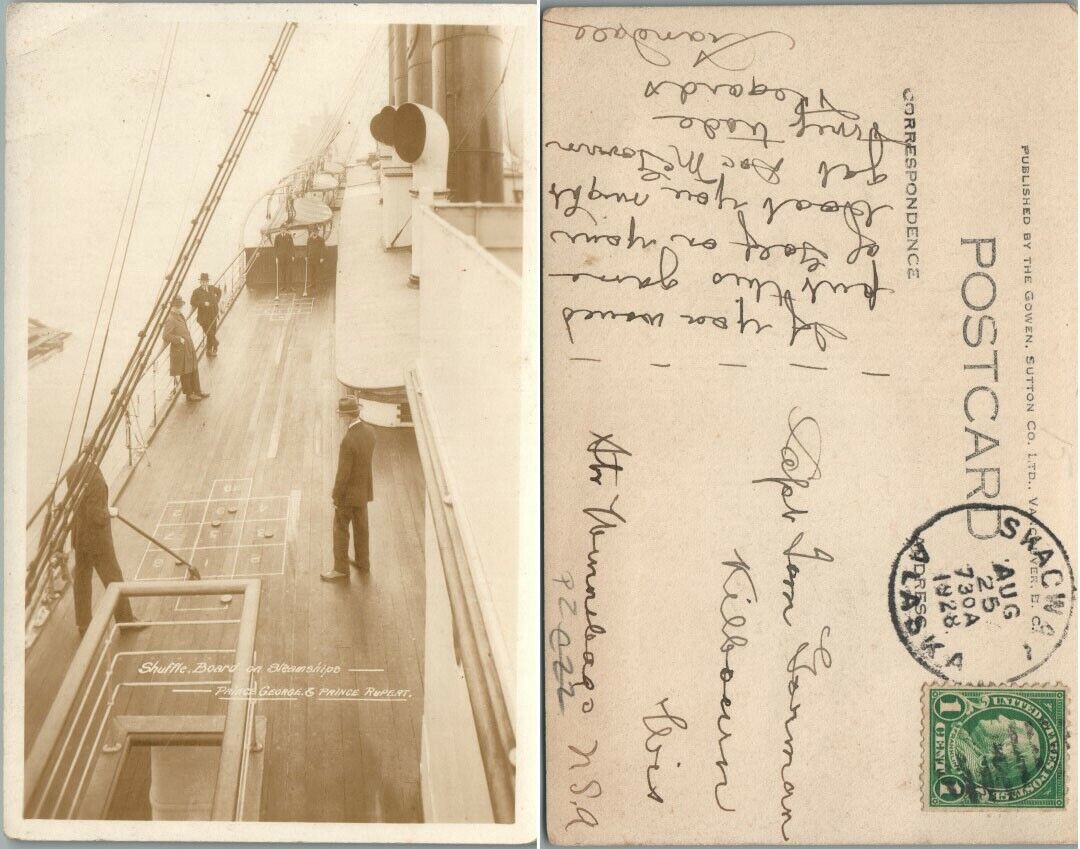 Shuffle. Board on Steamships
PRINCE GEORGE. & PRINCE RUPERT.
PUBLISHED BY THE GOWEN, SUTTON CO. LTD., VANCOUVER, B. C.
POSTCARD
CORRESPONDENCE
ADDRESS
If you would
put this game
of Golf on your
boat you might
get Doc McGovern
fing trade
Regards
Crandall
Capt Tom Gorman
Kilbourn
Wis
Str Winnebago USA
PZ022
SKAGWAY
AUG
25
730A
1928
ALASKA
UNITED STATES POSTAGE
1 CENT 1